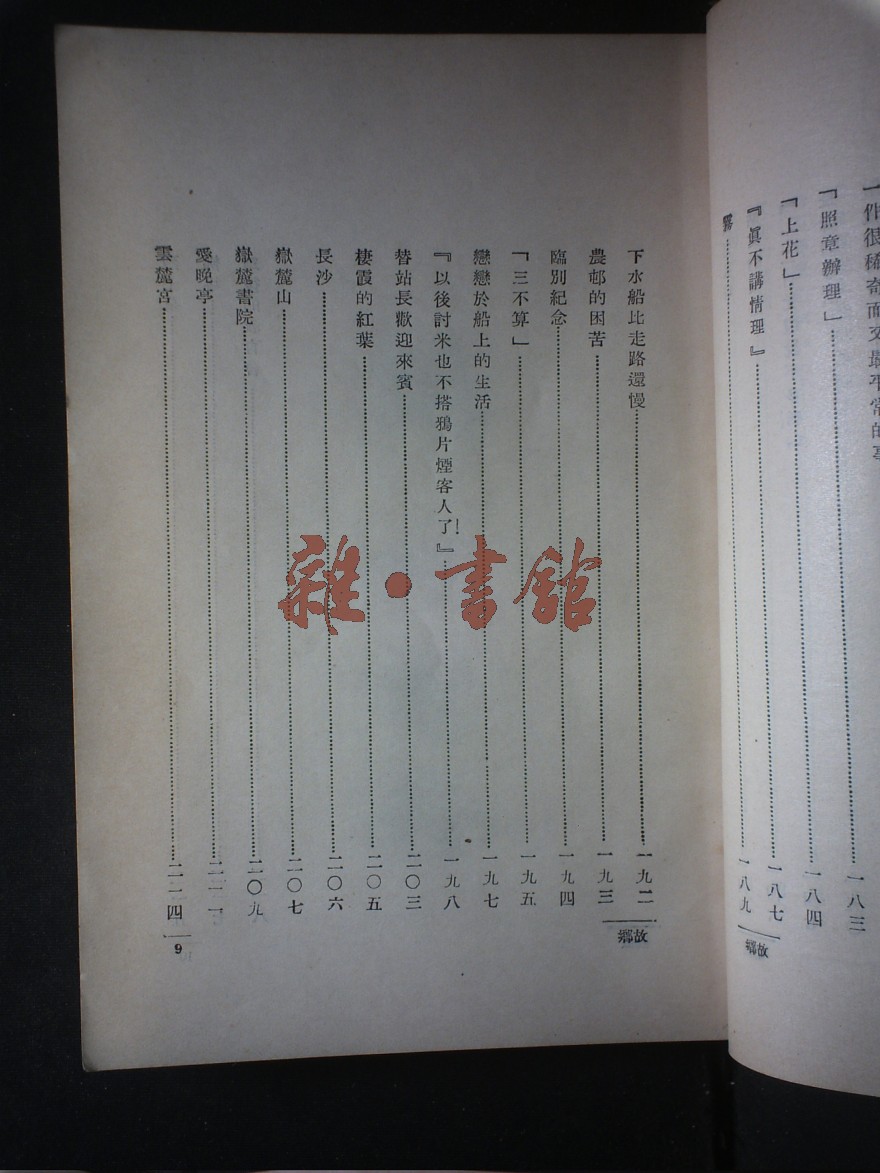 一件很稀奇而又最平常的事
「照章辦理」……一八三
「上花」……一八四
『眞不講情理』……一八七
霧……一八九
故鄉
下水船比走路還慢……一九二
農邨的困苦……一九三
臨別紀念……一九四
「三不算」……一九五
戀戀於船上的生活……一九七
『以後討米也不搭鴉片煙客人了!』……一九八
替站長歡迎來賓……二〇三
棲霞的紅葉……二〇五
長沙……二〇六
嶽麓山……二〇七
嶽麓書院……二〇九
愛晚亭……二一一
雲麓宮……二一四
故鄉
9
雜·書館